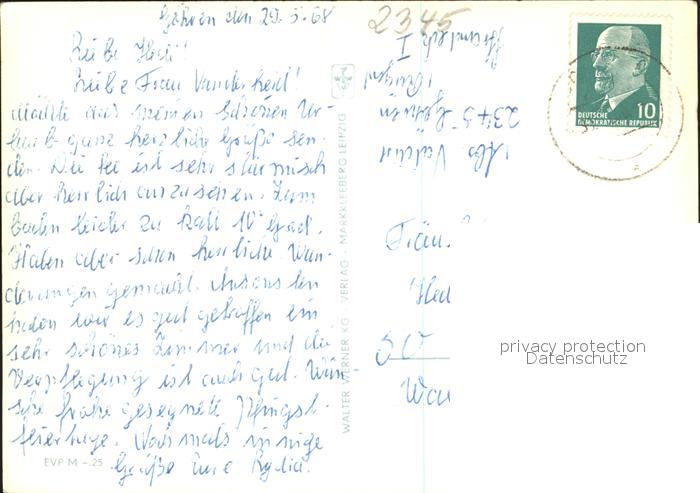 Göhren den 29.5.68
2345
Liebe Hedi!
Liebe Frau Vanderheid!
möchte aus meinen schönen Ur-
laub ganz herzliche Grüße sen-
den. Die See ist sehr stürmisch
aber herrlich anzusehen. Zum
baden leider zu kalt 10 Grad.
Haben aber schon herrliche Wan-
derungen gemacht. Ansonsten
haben wir es gut getroffen ein
sehr schönes Zimmer und die
Verpflegung ist auch gut. Wün-
sche frohe gesegnete Pfingst-
feiertage. Vormals innige
Grüße ihre
EVP M –.25
WALTER WERNER KG · VERLAG · MARKKLEEBERG LEIPZIG
Abs
2345 Göhren
Rügen
I
10
DEUTSCHE
DEMOKRATISCHE REPUBLIK
Frau
Hed
50
privacy protection
Datenschutz